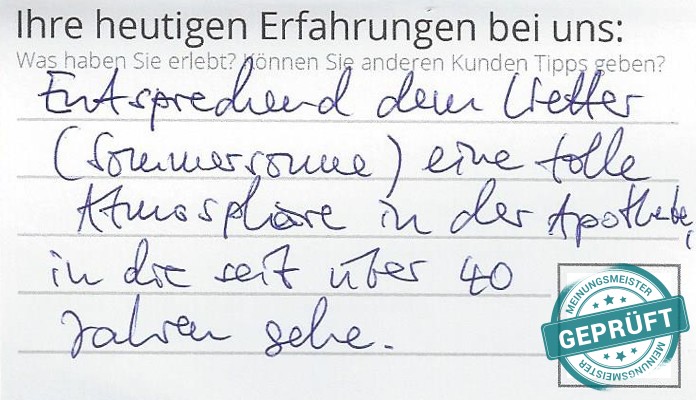 Ihre heutigen Erfahrungen bei uns:
Was haben Sie erlebt? Können Sie anderen Kunden Tipps geben?
Entsprechend dem Wetter
(Sommersonne) eine tolle
Atmosphäre in der Apotheke,
in die ich seit über 40
Jahren gehe.
MEINUNGSMEISTER
GEPRÜFT
MEINUNGSMEISTER